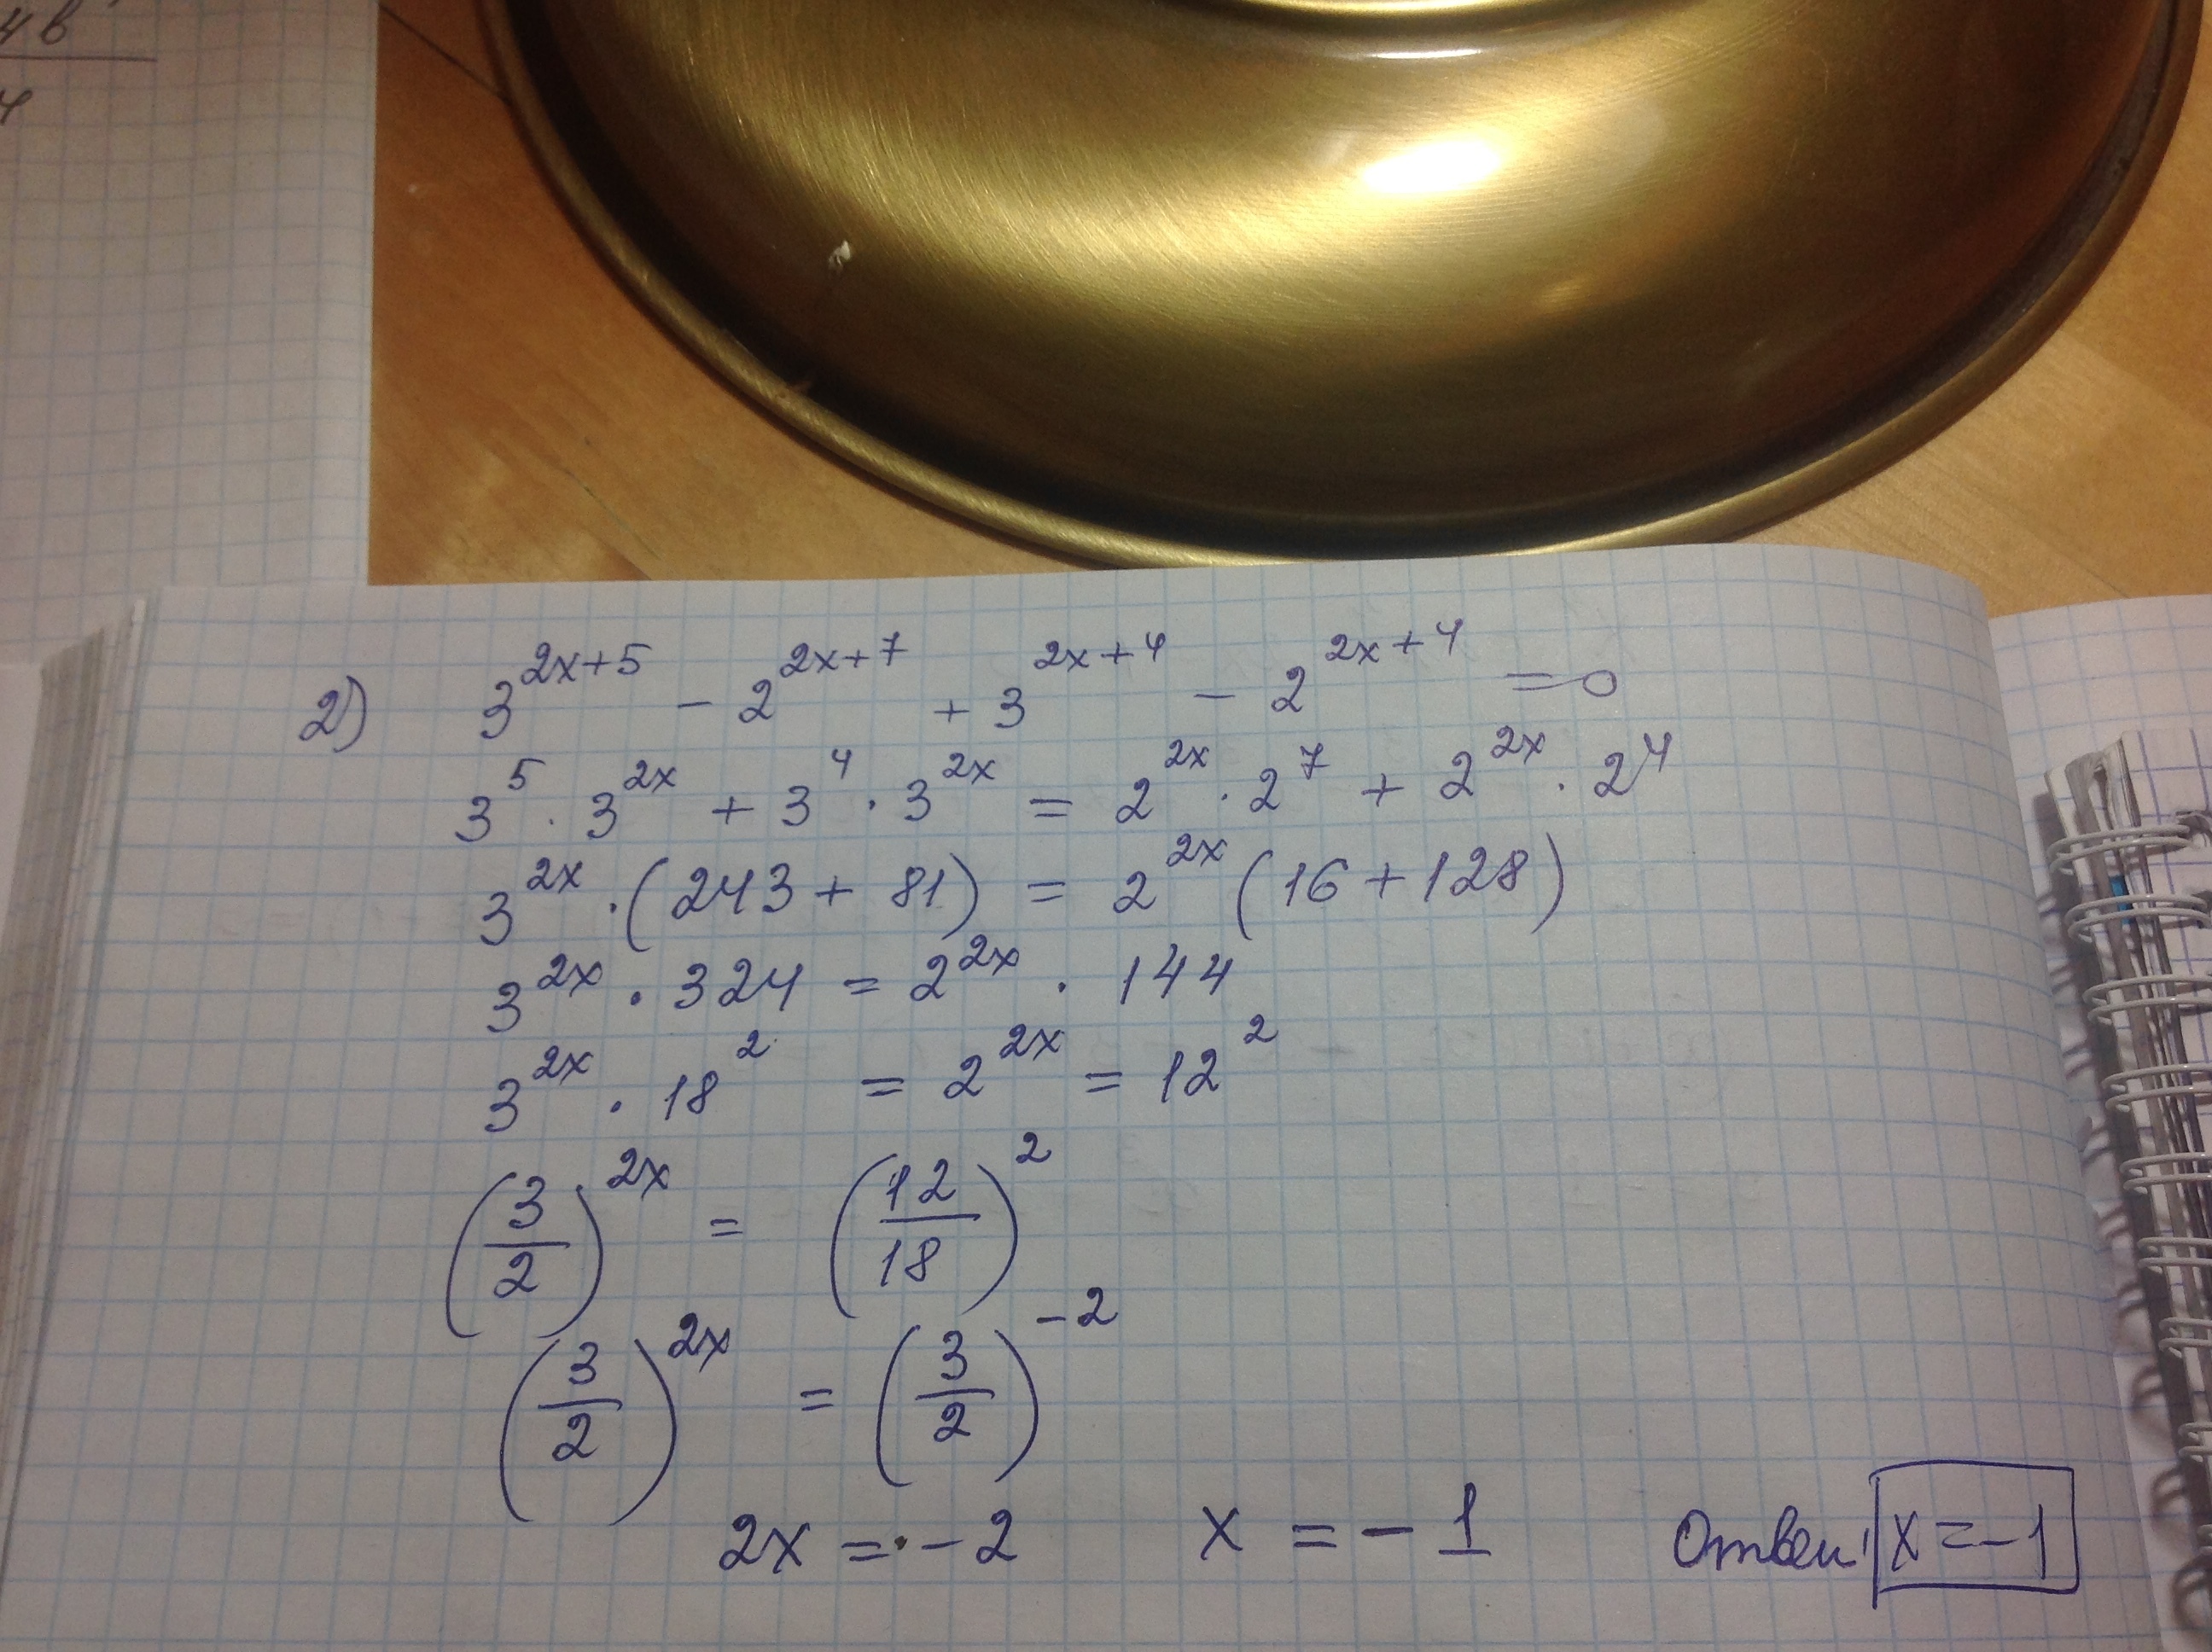 4b
4
2) 3^{2x+5} - 2^{2x+7} + 3^{2x+4} - 2^{2x+4} = 0
3^5 · 3^{2x} + 3^4 · 3^{2x} = 2^{2x} · 2^7 + 2^{2x} · 2^4
3^{2x} · (243 + 81) = 2^{2x} (16 + 128)
3^{2x} · 324 = 2^{2x} · 144
3^{2x} · 18^2 = 2^{2x} = 12^2
(3/2)^{2x} = (12/18)^2
(3/2)^{2x} = (3/2)^{-2}
2x = -2 x = -1 Ответ: x = -1